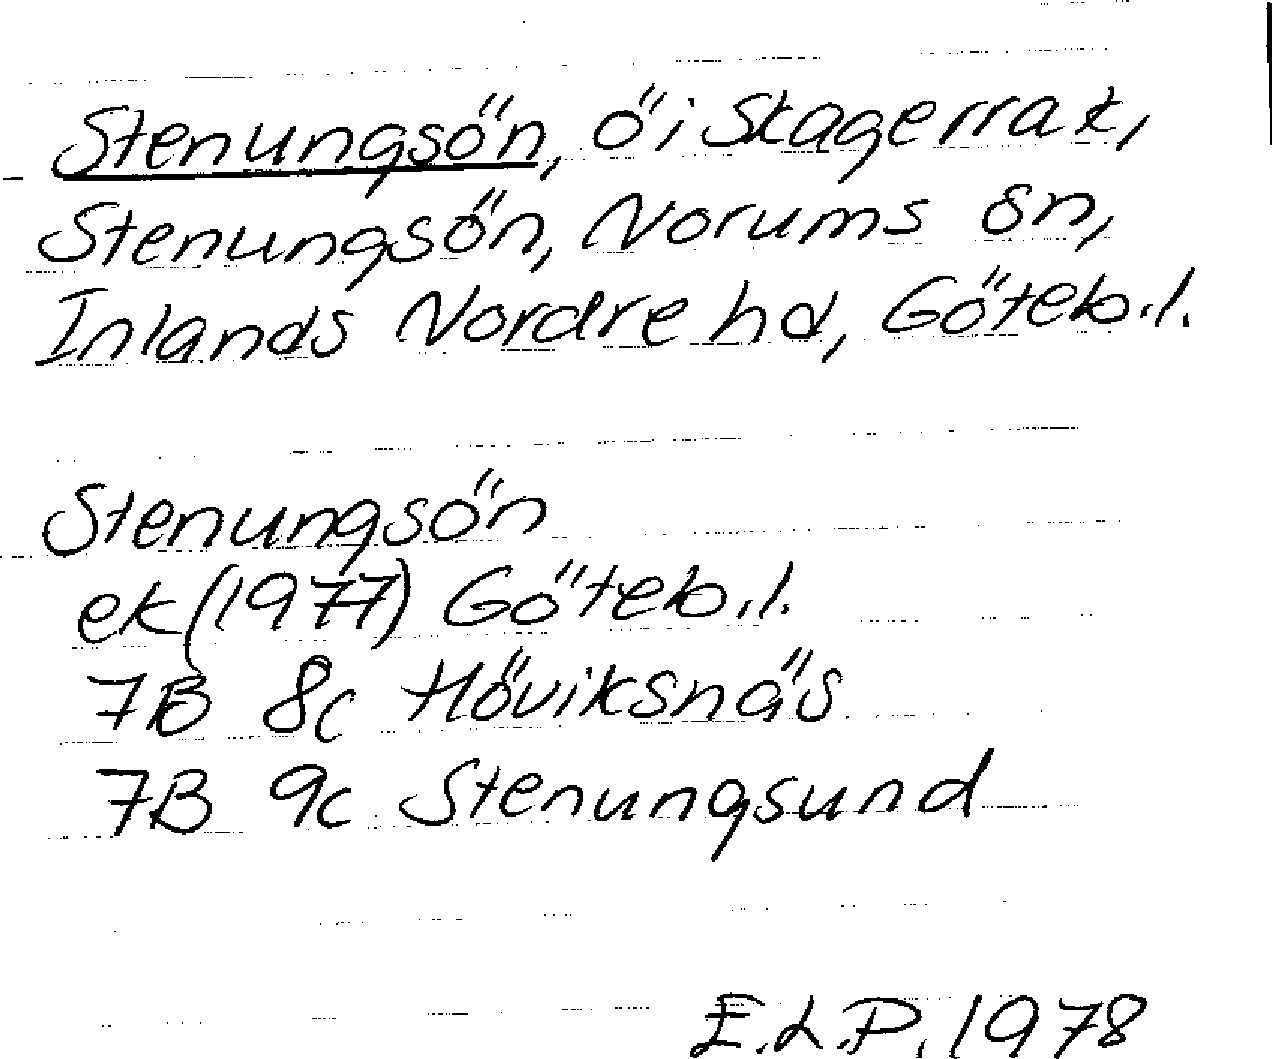 Stenungsön, ö i Skagerrak,
Stenungsön, Norums sn,
Inlands Nordre hd, Göteb.l.
Stenungsön
ek (1977) Göteb.l.
7B 8c Höviksnäs
7B 9c Stenungsund
E.L.P. 1978